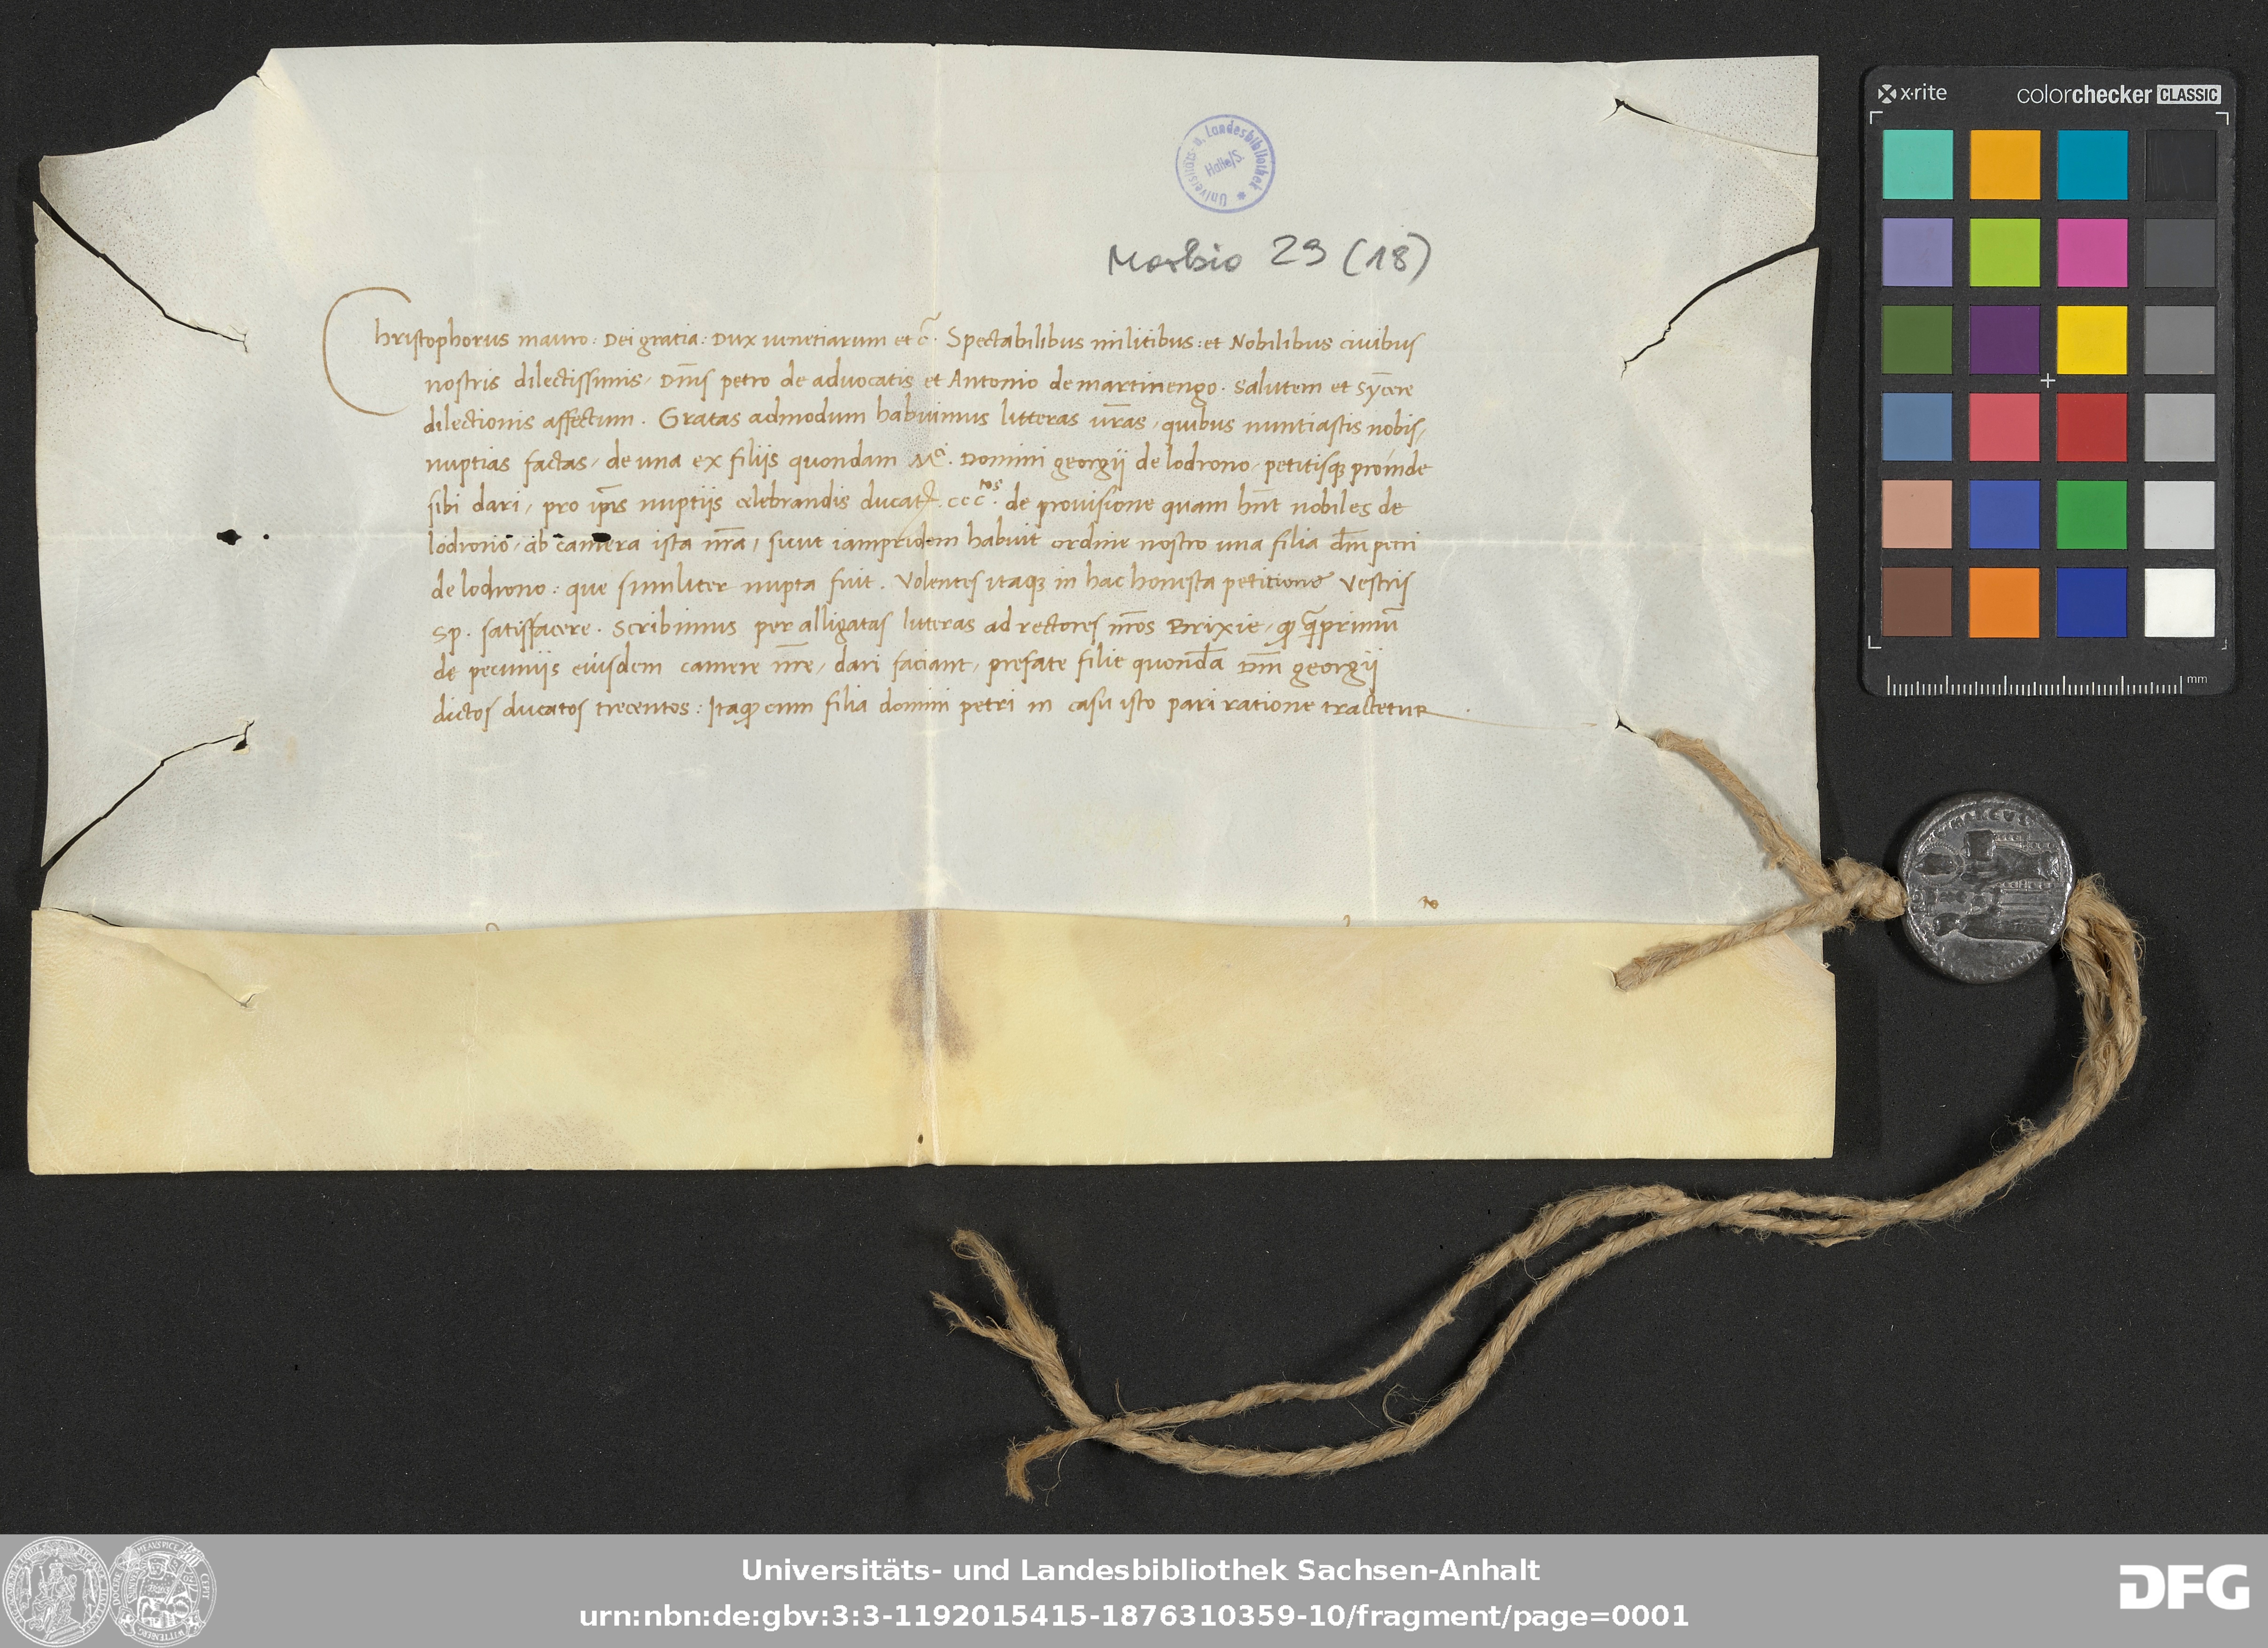 x·rite colorchecker CLASSIC
Universitäts- u. Landesbibliothek * Halle/S.
Morbio 29 (18)
Christophorus mauro: Dei gratia: Dux venetiarum et c̃. Spectabilibus militibus: et Nobilibus civibus
nostris dilectissimis, Dñis petro de advocatis et Antonio de martinengo. salutem et syc̃ere
dilectionis affectum. Gratas admodum habuimus litteras ur̃as, quibus nuntiastis nobis,
nuptias factas, de una ex filijs quondam Mci. Domini georgij de lodrono, petitisqȝ proinde
sibi dari, pro ip̃is nuptijs celebrandis ducatꝝ. ccctos. de provisione quam hñt nobiles de
lodrono, ab camera ista nr̃a, sicut iampridem habuit ordine nostro una filia dñi petri
de lodrono: que similiter nupta fuit. Volentes itaqȝ in hac honesta petitione Vestris
Sp. satisfacere. Scribimus per alligatas litteras ad rectores nr̃os Brixie, ꝙ q̃primũ
de pecuniis eiusdem camere nr̃e, dari faciant, prefate filie quondã Dñi georgij
dictos ducatos trecentos: Itaqȝ cum filia domini petri in casu isto pari ratione tractetur
mm
Universitäts- und Landesbibliothek Sachsen-Anhalt
urn:nbn:de:gbv:3:3-1192015415-1876310359-10/fragment/page=0001
DFG